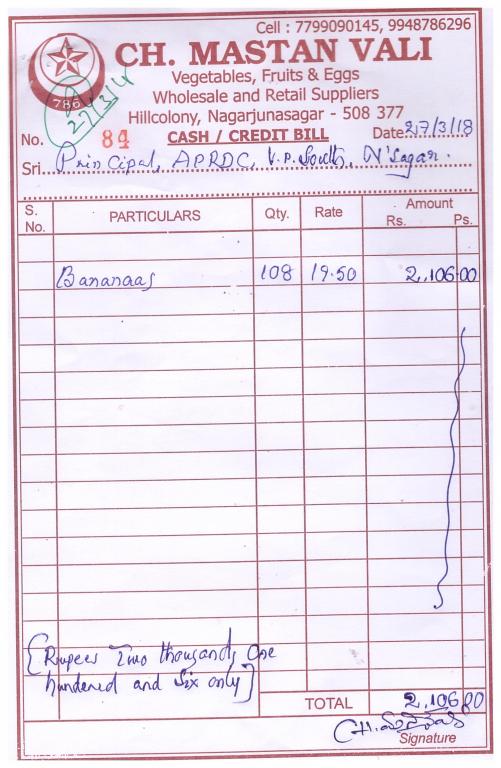 Cell : 7799090145, 9948786296
CH. MASTAN VALI
786
27/3/18
Vegetables, Fruits & Eggs
Wholesale and Retail Suppliers
Hillcolony, Nagarjunasagar - 508 377
No. 84 CASH / CREDIT BILL Date 27/3/18
Sri Principal, APRDC, V.P. South, N'Sagar.
S. No. PARTICULARS Qty. Rate Amount
Rs. Ps.
Bananaas 108 19.50 2,106.00
[Rupees Two thousands One
hundered and Six only]
TOTAL 2,106.00
CH.
Signature